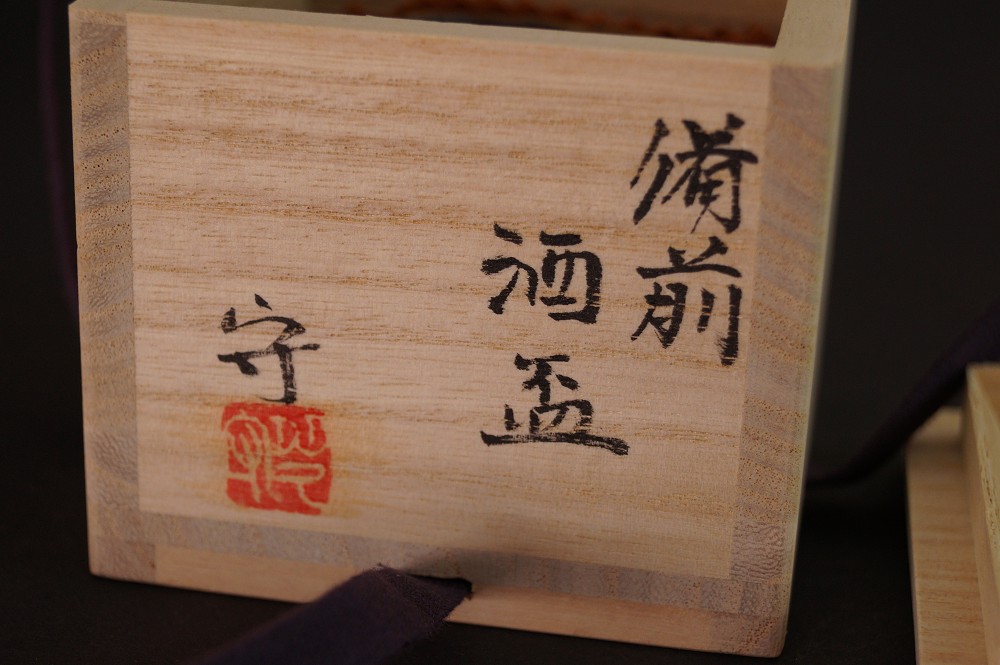 備前
酒盃
守